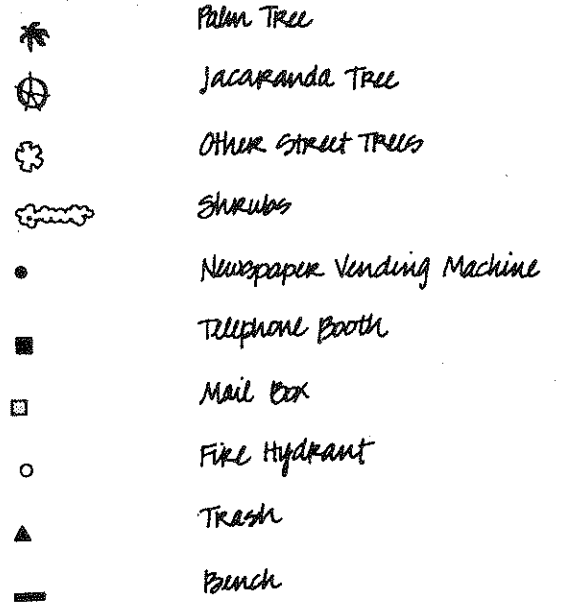 Palm Tree
Jacaranda Tree
Other Street Trees
Shrubs
Newspaper Vending Machine
Telephone Booth
Mail Box
Fire Hydrant
Trash
Bench